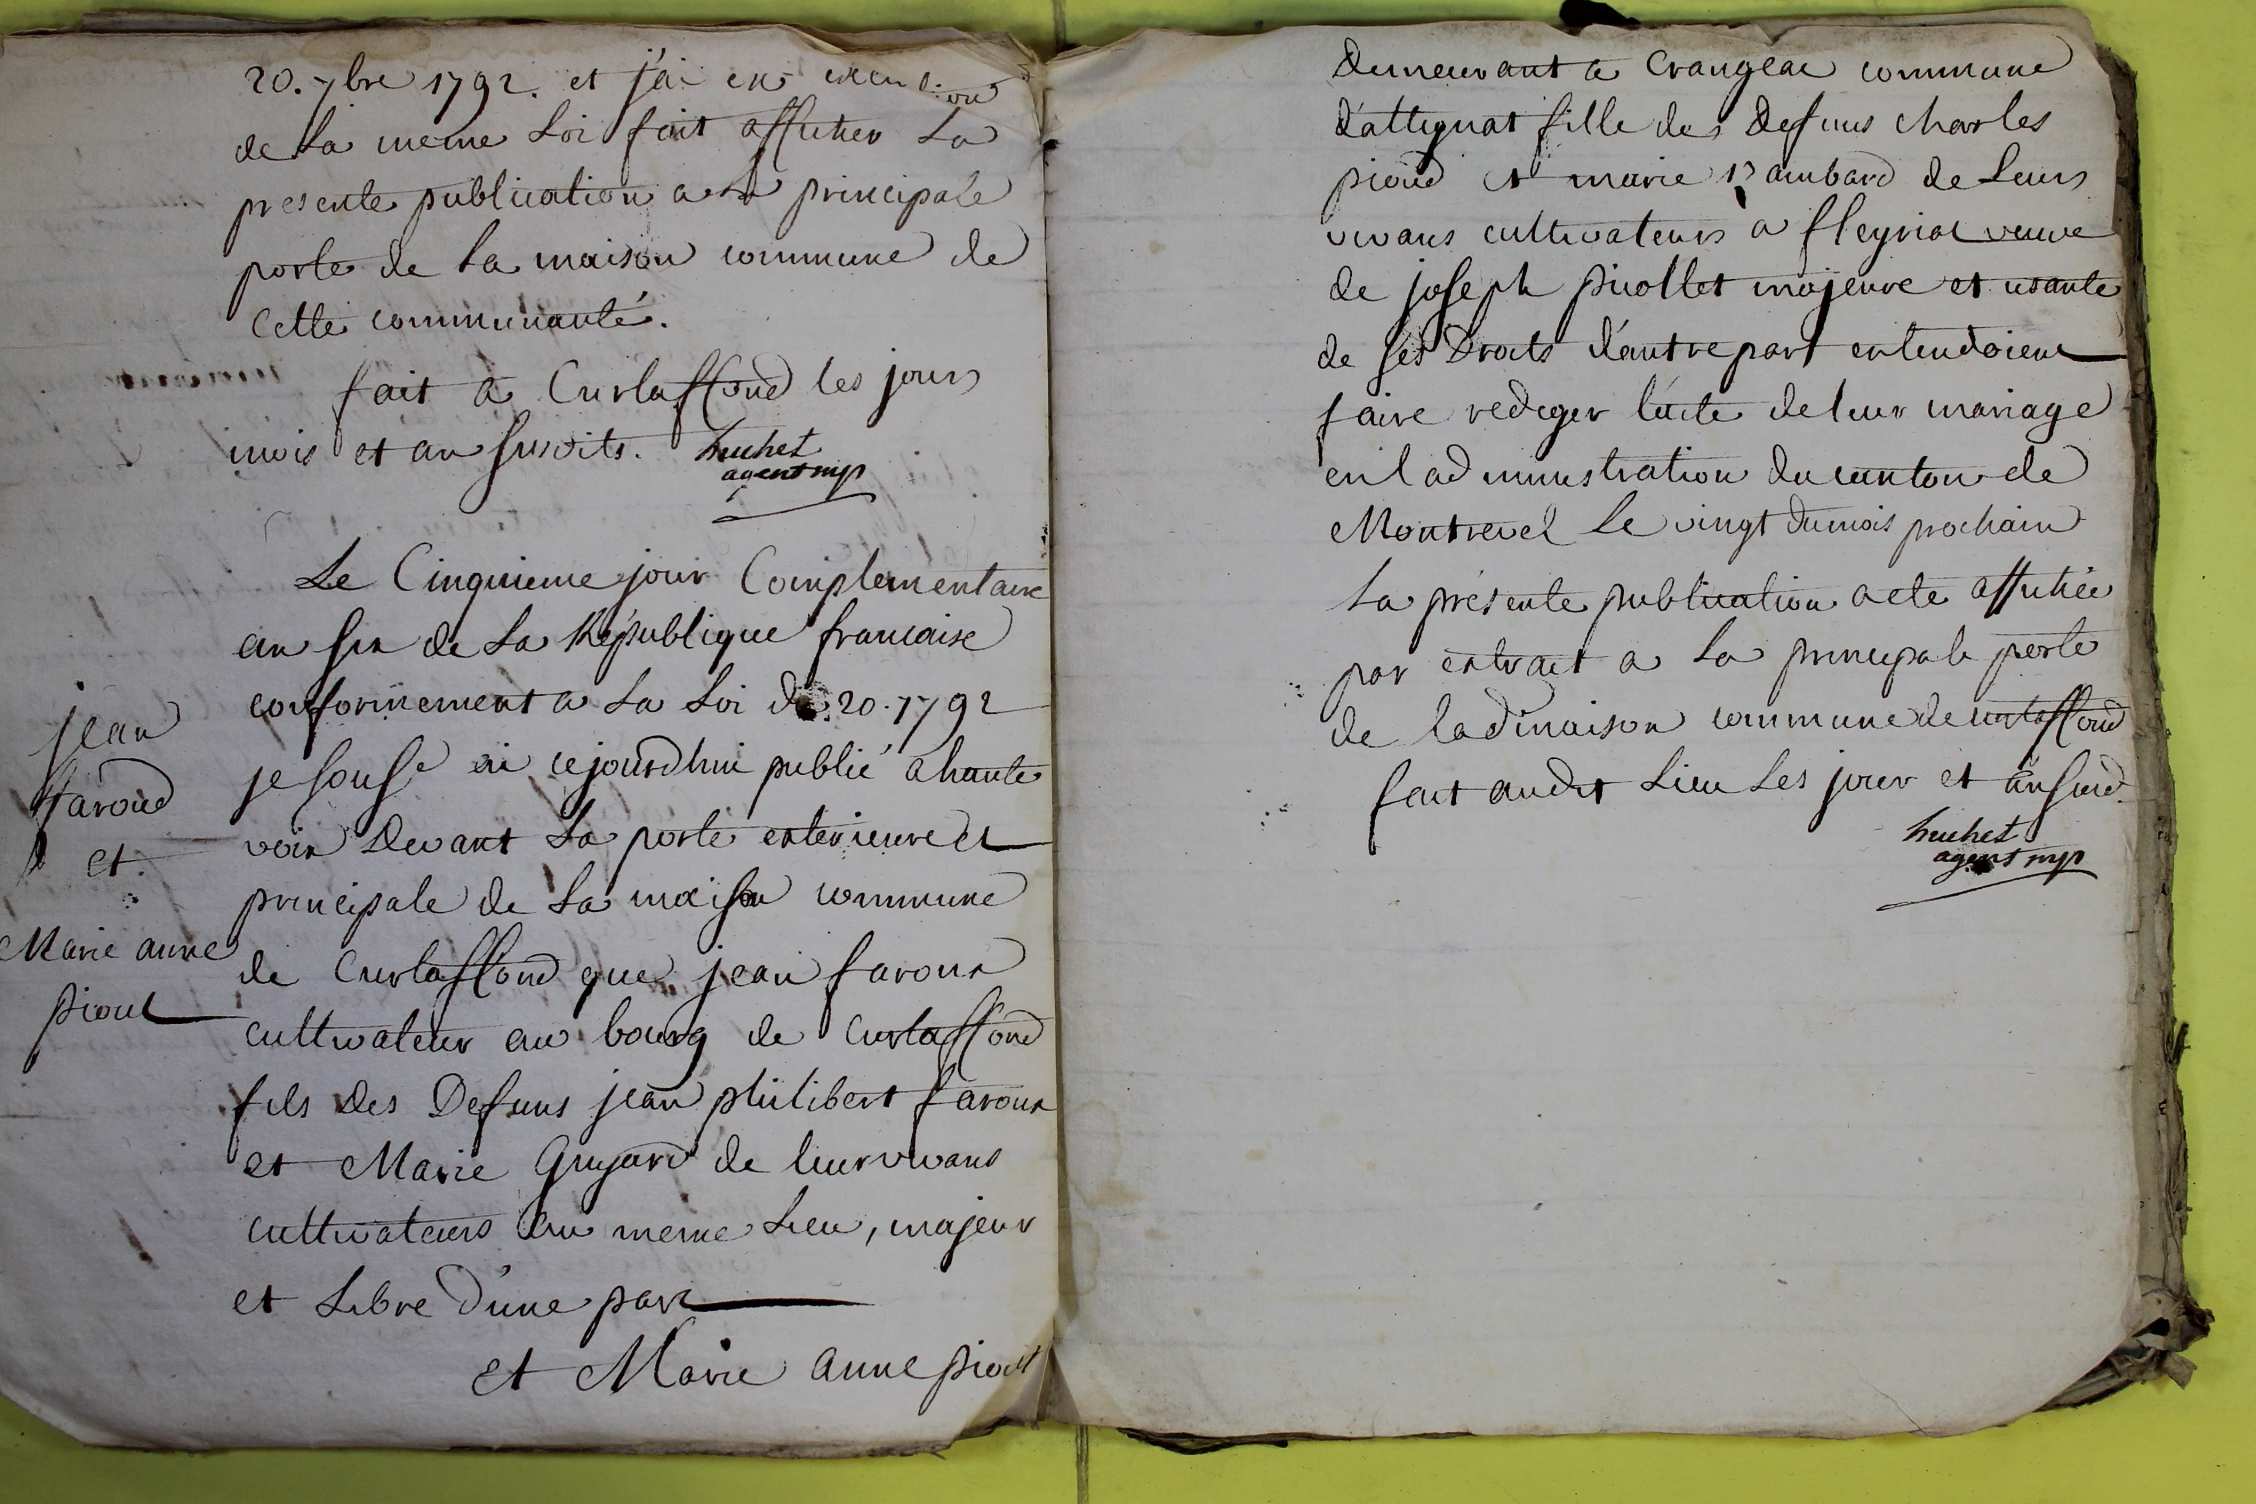 20. 7bre 1792. et j'ai en execution
de la meme Loi fait afficher La
presente publication a la principale
porte de La maison commune de
Cette communauté.
fait a Curtaffond les jour
mois et an susdits. huchet
agent mpl
Le Cinquieme jour Complementaire
an six de La République francaise
conformement a La Loi du 20. 7 92
je sousé ai cejourdhui publié a haute
voix Devant La porte exterieure et
principale de La maison commune
de Curtaffond que jean faroux
cultivateur au bourg de Curtaffond
fils des Defuns jean philibert faroux
et Marie Guyard de leur vivans
cultivateurs au meme Lieu, majeur
et Libre d'une part
et Marie anne piout
jean
faroud
et
Marie anne
piout
Demeurant a Crangeac commune
d'attignat fille des Defuns charles
pioud et marie Bambard de Leurs
vivans cultivateurs a fleyriat veuve
de joseph picollet majeure et usante
de ses Droits d'autre part entendoient
faire rediger l'acte de leur mariage
en l'administration du canton de
Montrevel Le vingt du mois prochain
La présente publication a ete affichée
par extrait a La principale porte
de ladi maison commune de curtaffond
fait audit Lieu Les jour et an susd.
huchet
agent mpl